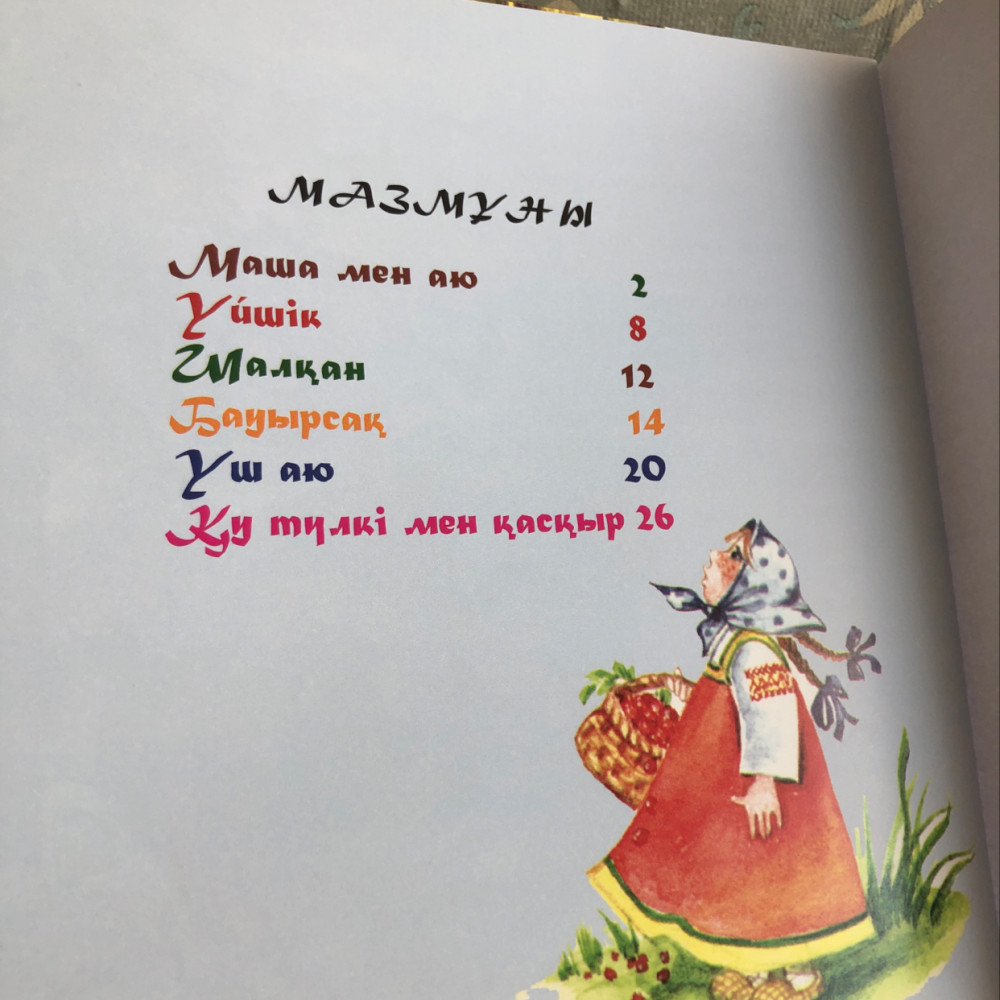 МАЗМҰНЫ
Маша мен аю 2
Үйшік 8
Шалқан 12
Бауырсақ 14
Үш аю 20
Қу түлкі мен қасқыр 26